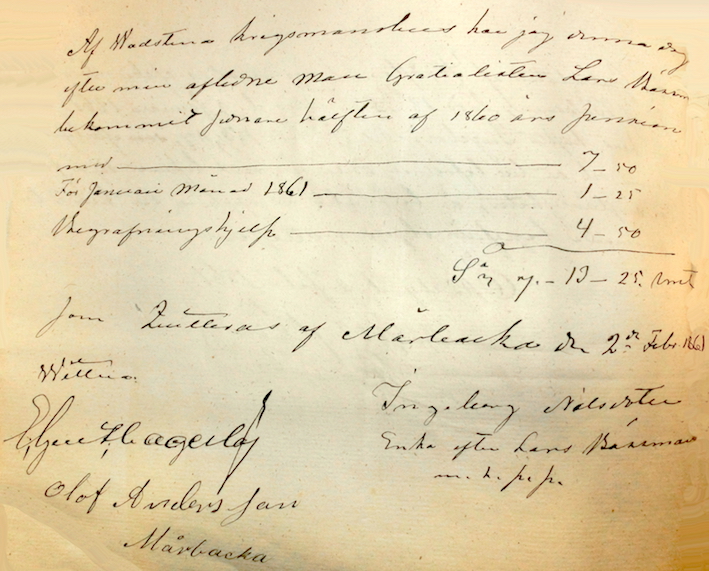 Af Wadstena Krigsmanshus har jag denna dag
efter min aflidne Man Gratialisten Lars Båsman
bekommit sednare hälften af 1860 års Pension
med 7 - 50
För Januari Månad 1861 1 - 25
Begrafningshjelp 4 - 50
Sa 13 - 25
som quitteras af Mårbacka den 2dn Febr. 1861
Wittna
Ingeborg Nilsdotter
Enka efter Lars Båsman
m. h. p. p.
Lagerlöf
Olof Andersson
Mårbacka